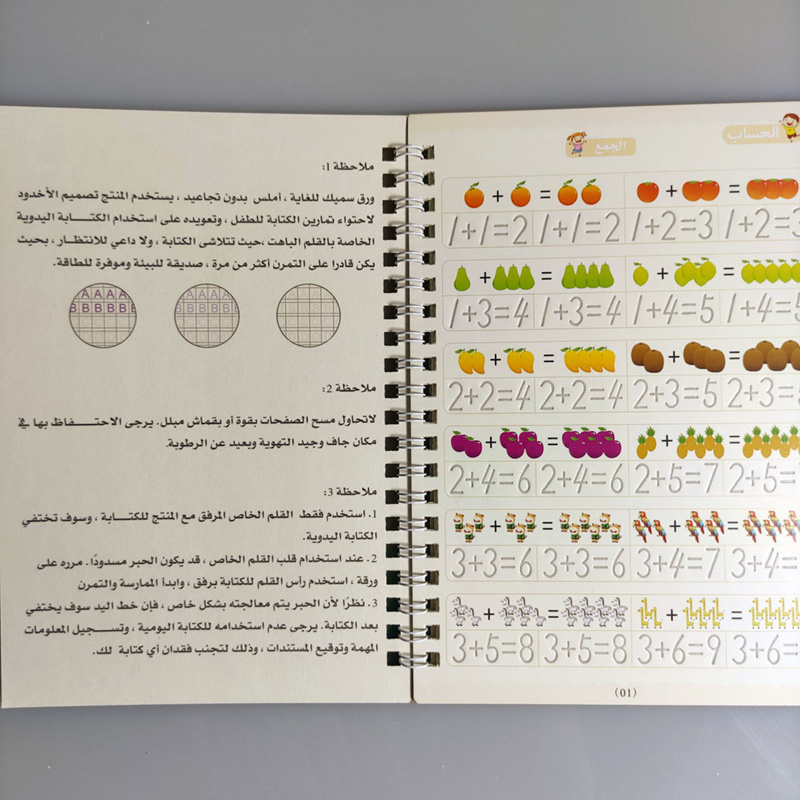 ملاحظة 1:
ورق سميك للغاية ، أملس بدون تجاعيد ، يستخدم المنتج تصميم الأخدود
لاحتواء تمارين الكتابة للطفل ، وتعويده على استخدام الكتابة اليدوية
الخاصة بالقلم الباهت ،حيث تتلاشى الكتابة ، ولا داعي للانتظار ، بحيث
يكن قادرا على التمرن أكثر من مرة ، صديقة للبيئة وموفرة للطاقة.
A A A A
B B B B B
A A A A
B B B B B
ملاحظة 2:
لاتحاول مسح الصفحات بقوة أو بقماش مبلل. يرجى الاحتفاظ بها في
مكان جاف وجيد التهوية وبعيد عن الرطوبة.
ملاحظة 3:
1. استخدم فقط القلم الخاص المرفق مع المنتج للكتابة ، وسوف تختفي
الكتابة اليدوية.
2. عند استخدام قلب القلم الخاص ، قد يكون الحبر مسدودًا. مرره على
ورقة ، استخدم رأس القلم للكتابة برفق ، وابدأ الممارسة والتمرن
3. نظرًا لأن الحبر يتم معالجته بشكل خاص ، فإن خط اليد سوف يختفي
بعد الكتابة. يرجى عدم استخدامه للكتابة اليومية ، وتسجيل المعلومات
المهمة وتوقيع المستندات ، وذلك لتجنب فقدان أي كتابة لك.
الحساب
الجمع
+ = + =
1+1=2 1+1=2 1+2=3 1+2=3
+ = + =
1+3=4 1+3=4 1+4=5 1+4=5
+ = + =
2+2=4 2+2=4 2+3=5 2+3=
+ = + =
2+4=6 2+4=6 2+5=7 2+5=
+ = + =
3+3=6 3+3=6 3+4=7 3+4=
+ = + =
3+5=8 3+5=8 3+6=9 3+6=
(01)